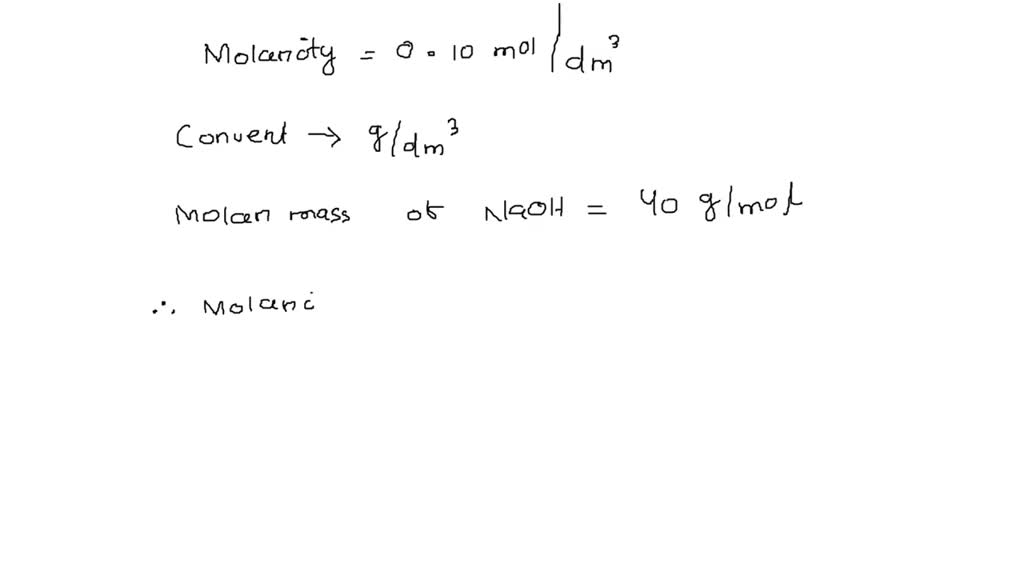 Molarity = 0.10 mol/dm³
Convert → g/dm³
Molar mass of NaOH = 40 g/mol
∴ Molari